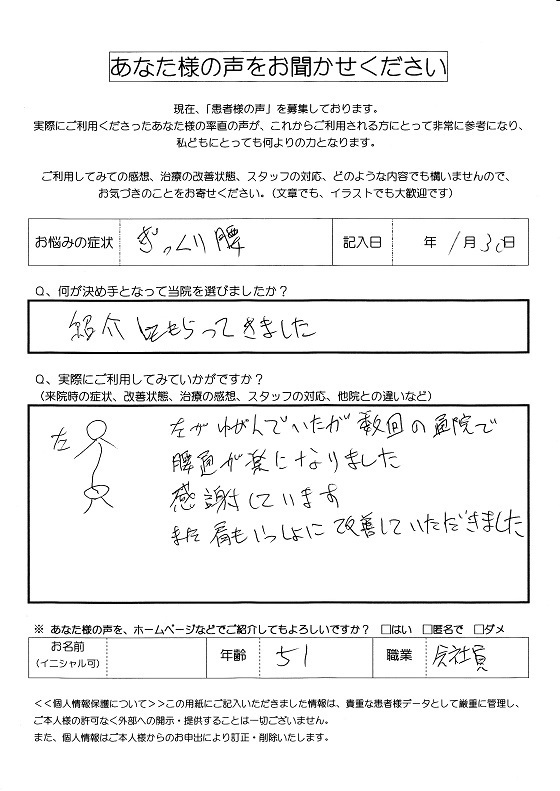 あなた様の声をお聞かせください
現在、「患者様の声」を募集しております。
実際にご利用くださったあなた様の率直の声が、これからご利用される方にとって非常に参考になり、
私どもにとっても何よりの力となります。
ご利用してみての感想、治療の改善状態、スタッフの対応、どのような内容でも構いませんので、
お気づきのことをお寄せください。（文章でも、イラストでも大歓迎です）
お悩みの症状 ぎっくり腰 記入日 年 1月30日
Q、何が決め手となって当院を選びましたか？
紹介してもらってきました
Q、実際にご利用してみていかがですか？
（来院時の症状、改善状態、治療の感想、スタッフの対応、他院との違いなど）
左
左がゆがんでいたが数回の通院で
腰通が楽になりました
感謝しています
また肩もいっしょに改善していただきました
※ あなた様の声を、ホームページなどでご紹介してもよろしいですか？ □はい □匿名で □ダメ
お名前
（イニシャル可）
年齢 51 職業 会社員
<<個人情報保護について>>この用紙にご記入いただきました情報は、貴重な患者様データとして厳重に管理し、
ご本人様の許可なく外部への開示・提供することは一切ございません。
また、個人情報はご本人様からのお申出により訂正・削除いたします。